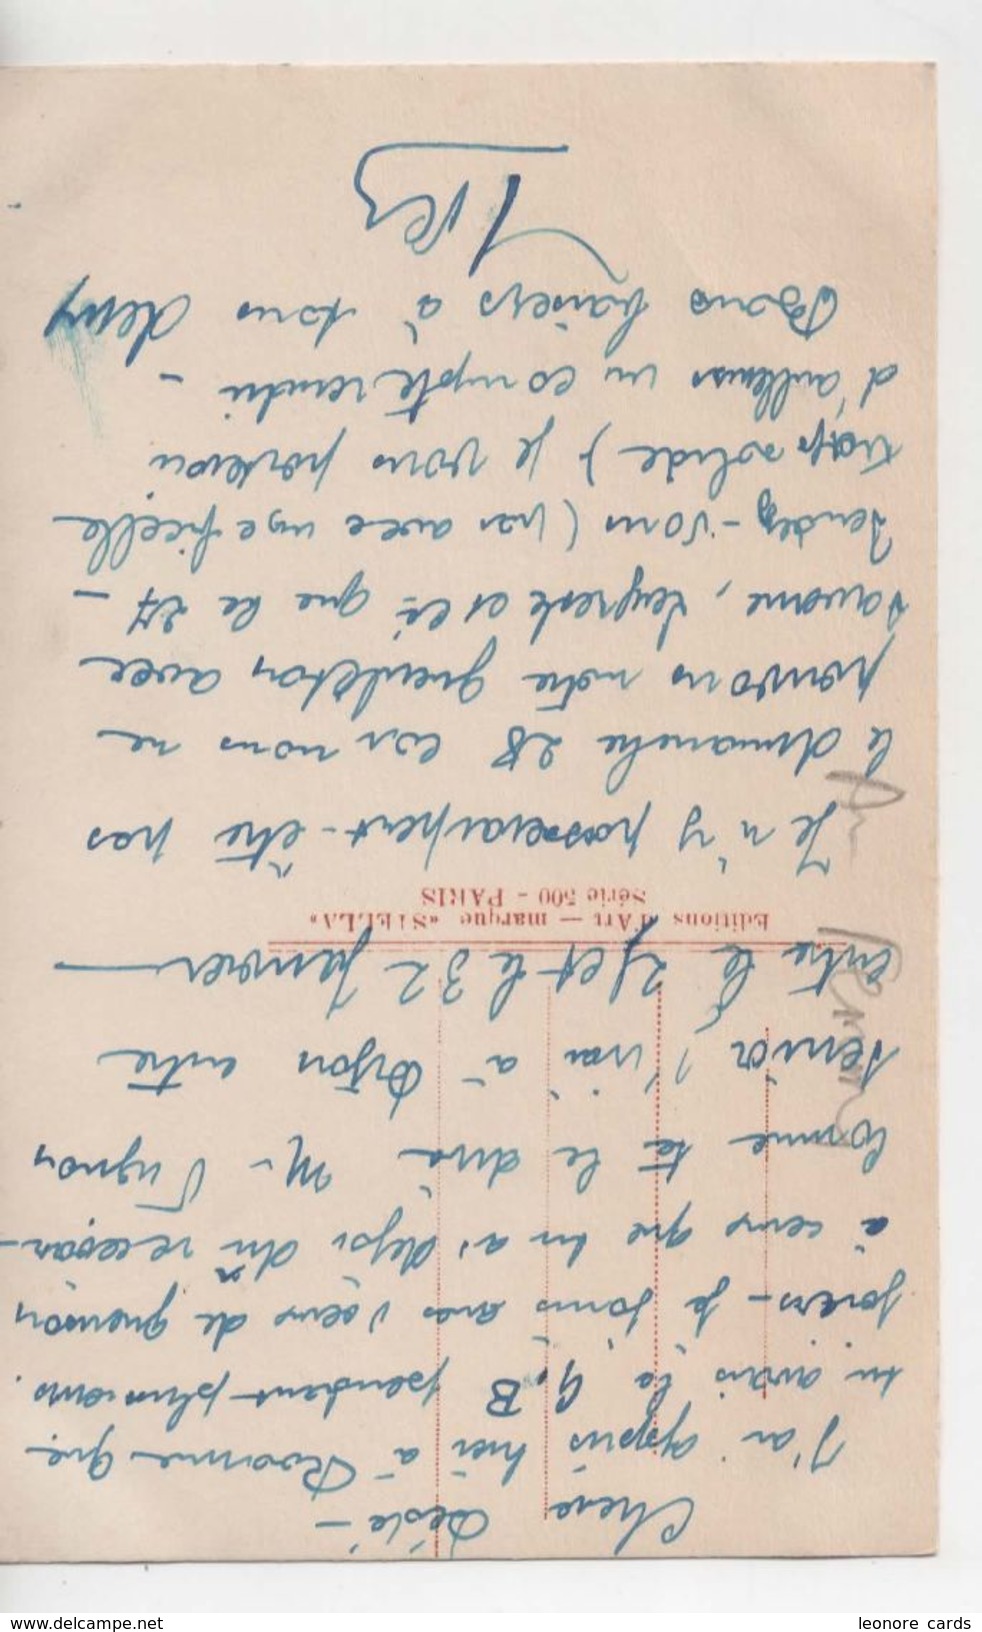 Chère Dédé -
J'ai appris hier à Roanne que
tu avais la G. B pendant plusieurs
jours - je joins mes vœux de guérison
à ceux que tu as déjà dû recevoir -
Comme te le dira M. Vignon
senior j'irai à Dijon entre
entre le 25 et le 32 Janvier
Editions d'Art — marque «STELLA»
Série 500 - PARIS
Je n'y passerai peut-être pas
le dimanche 28 car nous ne
pouvons notre gueuleton avec
Savoune, Leyreste et Cé que le 27 -
Pendez-vous (pas avec une ficelle
trop solide) je vous porterai
d'ailleurs un compte rendu -
Bons baisers à tous deux
leonore cards
www.delcampe.net